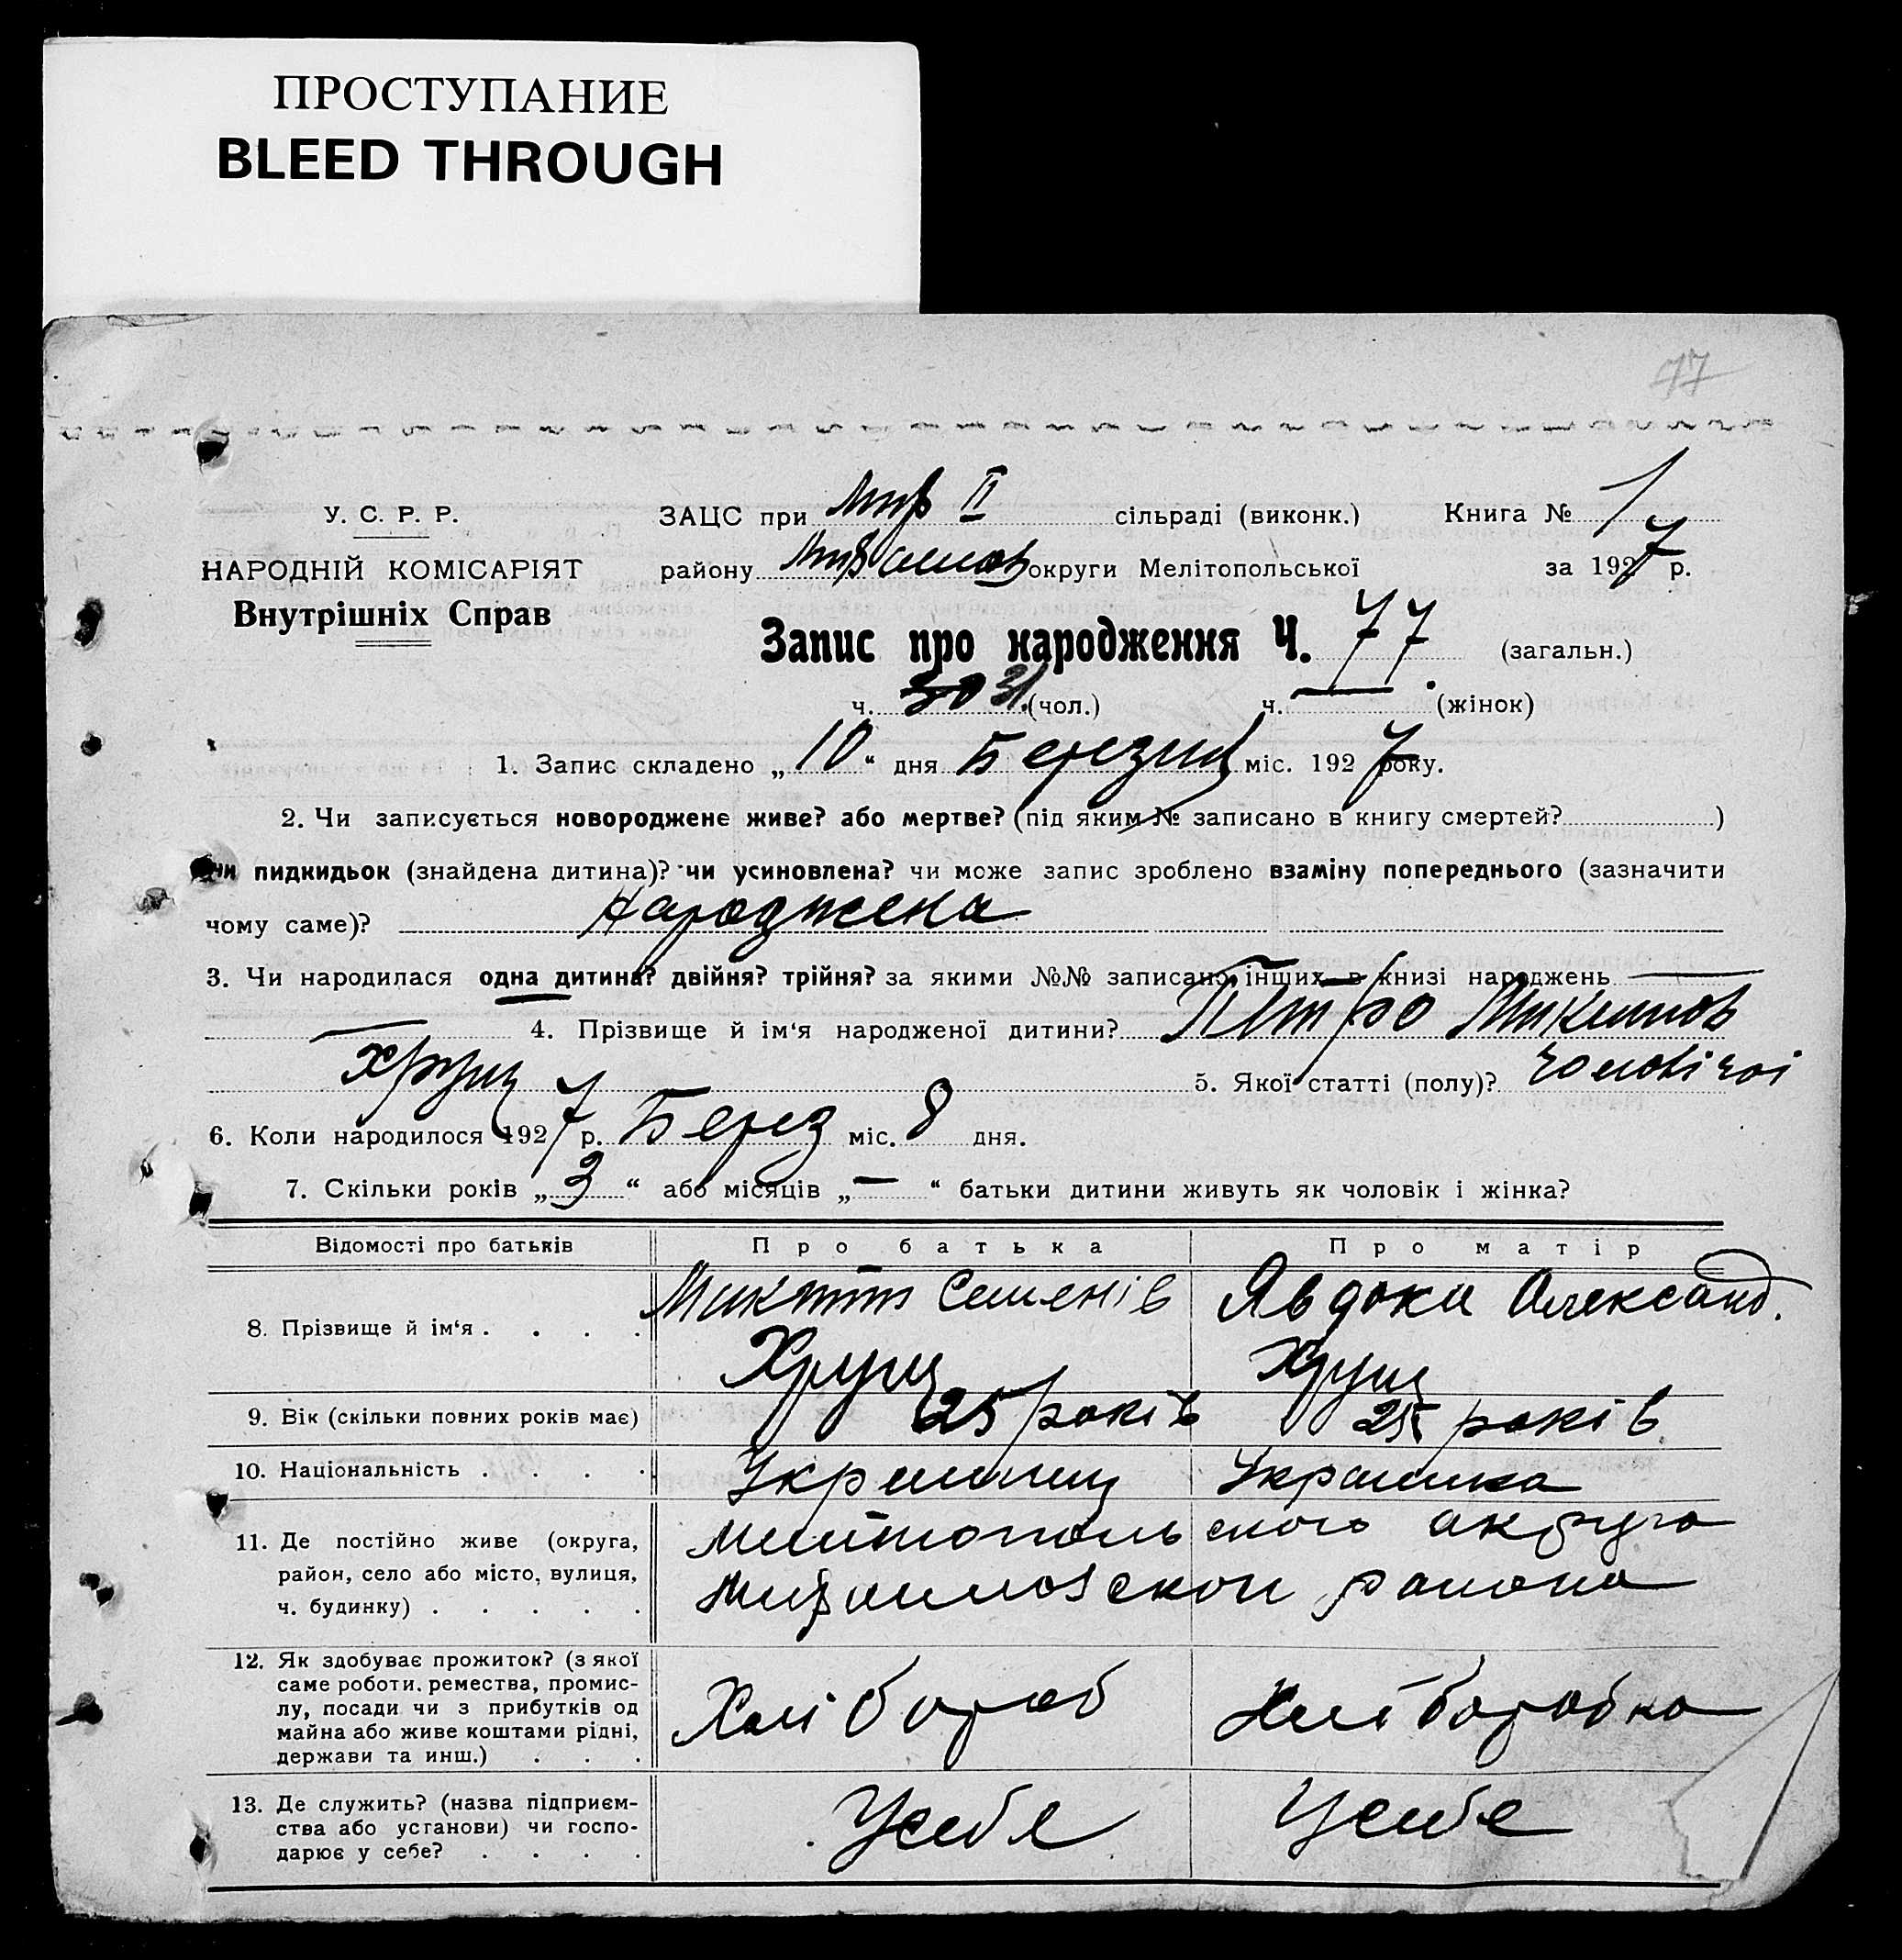 ПРОСТУПАНИЕ
BLEED THROUGH
77
У. С. Р. Р.
НАРОДНІЙ КОМІСАРІЯТ
Внутрішніх Справ
ЗАЦС при II сільраді (виконк.) Книга № 1
району округи Мелітопольської за 1927 р.
Запис про народження Ч. 77 (загальн.)
ч. 30 31 (чол.) ч. — (жінок)
1. Запис складено „10“ дня Березня міс. 1927 року.
2. Чи записується новороджене живе? або мертве? (під яким № записано в книгу смертей? )
чи пидкидьок (знайдена дитина)? чи усиновлена? чи може запис зроблено взаміну попереднього (зазначити
чому саме)? Народжена
3. Чи народилася одна дитина? двійня? трійня? за якими №№ записано інших в книзі народжень —
— 4. Прізвище й ім‘я народженої дитини? Петро
Хрущ 5. Якої статті (полу)? чоловічоі
6. Коли народилося 1927 р. Берез міс. 8 дня.
7. Скільки років „3“ або місяців „—“ батьки дитини живуть як чоловік і жінка?
Відомості про батьків Про батька Про матір
8. Прізвище й ім‘я . . . . Семенів Явдоки Олександ.
Хрущ Хрущ
9. Вік (скільки повних років має) 25 років 25 років
10. Національність . . . . Украинец Украинка
11. Де постійно живе (округа, Мелитопольского округа
район, село або місто, вулиця, района
ч. будинку) . . . . .
12. Як здобуває прожиток? (з якої
саме роботи, ремества, промис-
лу, посади чи з прибутків од Хлібороб Хліборобка
майна або живе коштами рідні,
держави та инш.) . . .
13. Де служить? (назва підприєм-
ства або установи) чи госпо- Усебе Усебе
дарює у себе? . . . .